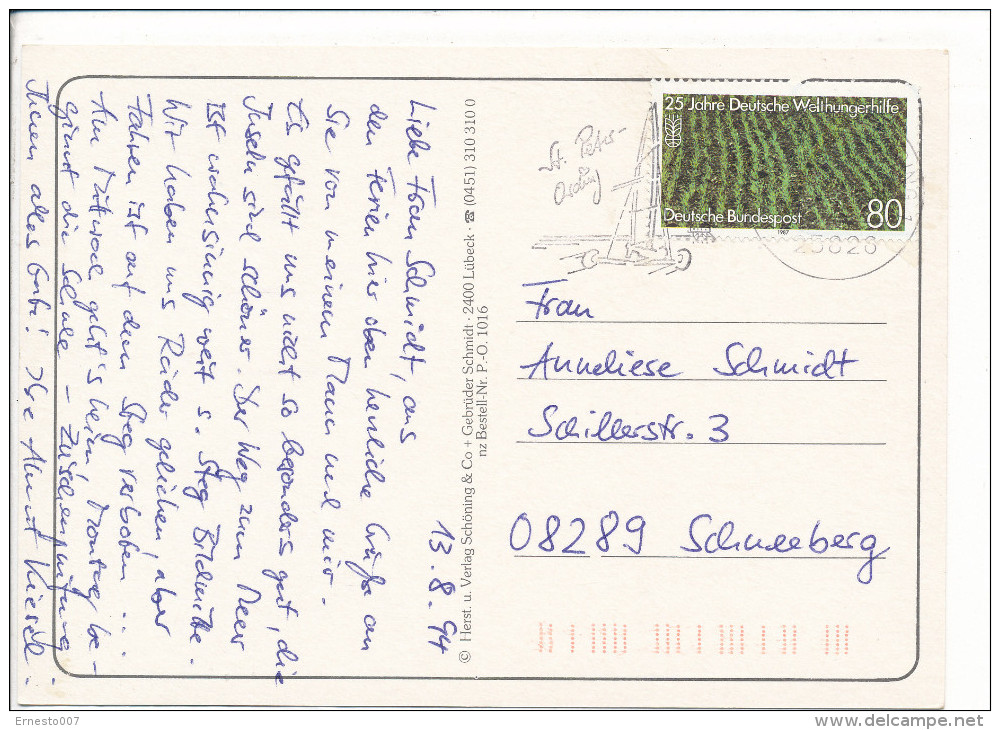 13.8.94
Liebe Frau Schmidt, aus
den Ferien hier oben herzliche Grüße an
Sie von meinem Mann und mir.
Es gefällt uns nicht so besonders gut, die
Inseln sind schöner. Der Weg zum Meer
ist wahnsinnig weit s. Steg Bildmitte.
Wir haben uns Räder geliehen, aber
Fahren ist auf dem Steg verboten ...
Am Mittwoch geht's heim, Montag be-
ginnt die Schule -
Ihnen alles Gute! Ihre Almut
© Herst. u. Verlag Schöning & Co + Gebrüder Schmidt · 2400 Lübeck · ☎ (0451) 310 310 0
nz Bestell-Nr. P.-O. 1016
St. Peter-
Ording
25 Jahre Deutsche Welthungerhilfe
Deutsche Bundespost
80
1987
25826
Frau
Anneliese Schmidt
Schillerstr. 3
08289 Schneeberg
Ernesto007
www.delcampe.net